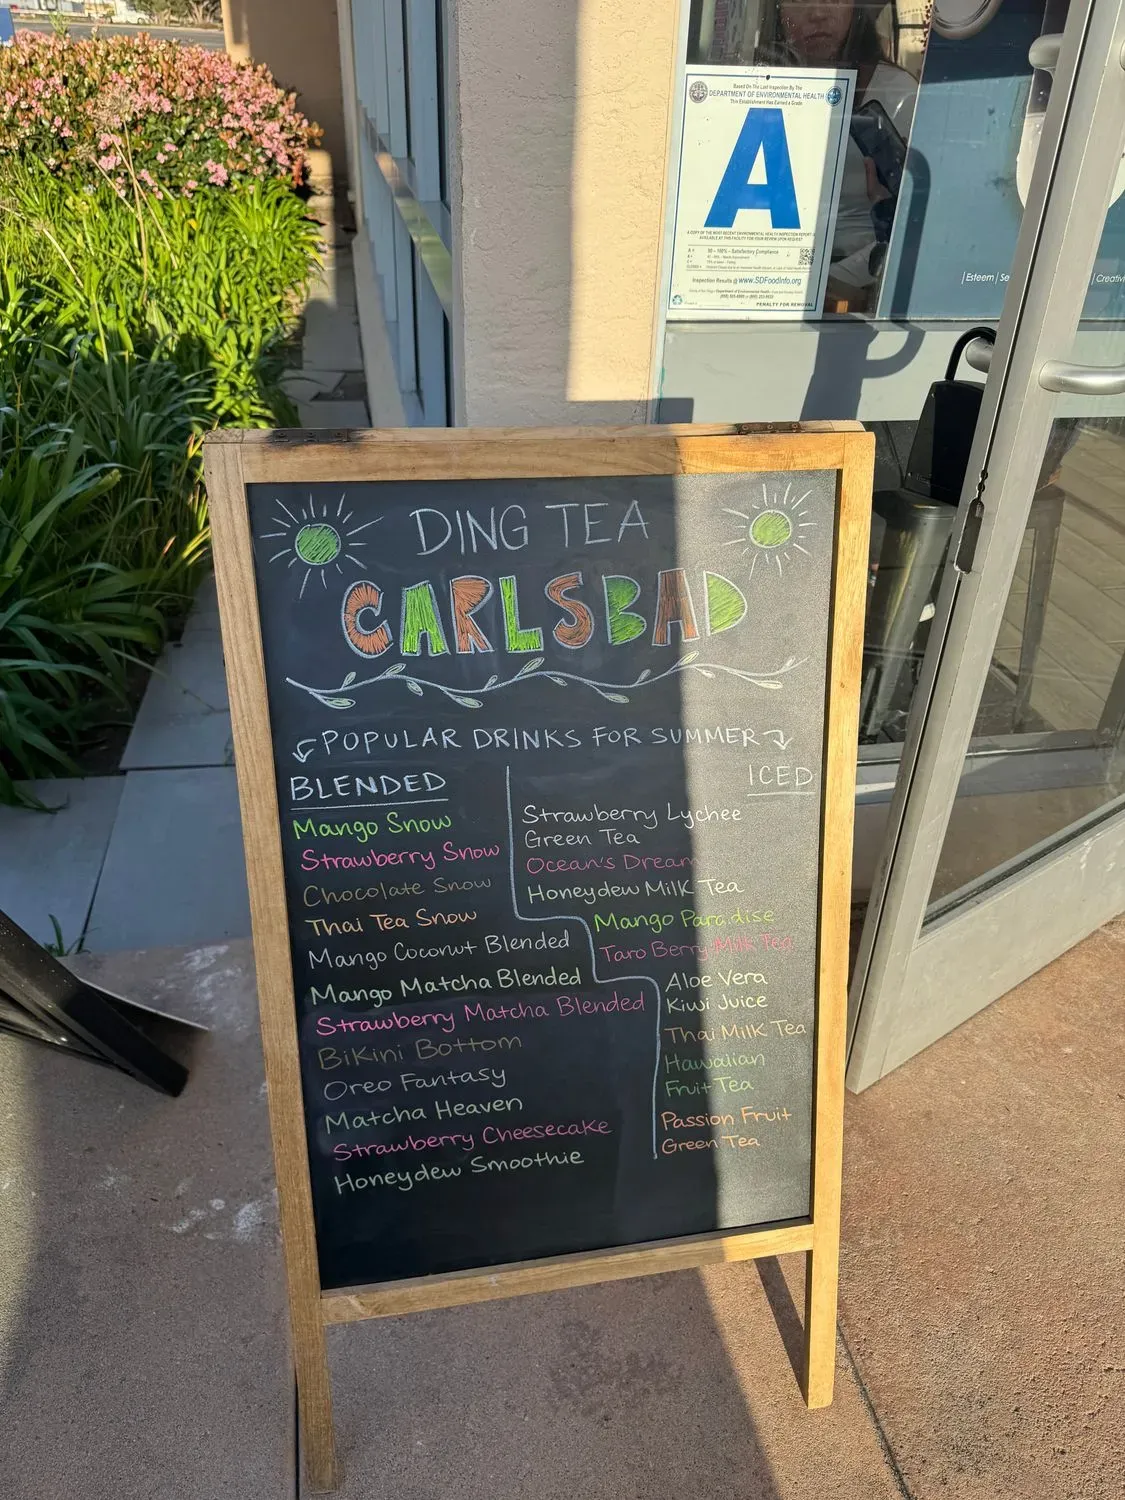 Based On The Last Inspection By The
DEPARTMENT OF ENVIRONMENTAL HEALTH
This Establishment Has Earned a Grade
A
A COPY OF THE MOST RECENT ENVIRONMENTAL HEALTH INSPECTION REPORT IS
AVAILABLE AT THIS FACILITY FOR YOUR REVIEW UPON REQUEST
A = 90 - 100% - Satisfactory Compliance
Inspection Results @ www.SDFoodInfo.org
PENALTY FOR REMOVAL
| Esteem | Se
| Creativ
DING TEA
CARLSBAD
POPULAR DRINKS FOR SUMMER
BLENDED
Mango Snow
Strawberry Snow
Chocolate Snow
Thai Tea Snow
Mango Coconut Blended
Mango Matcha Blended
Strawberry Matcha Blended
Bikini Bottom
Oreo Fantasy
Matcha Heaven
Strawberry Cheesecake
Honeydew Smoothie
ICED
Strawberry Lychee
Green Tea
Ocean's Dream
Honeydew Milk Tea
Mango Paradise
Taro Berry Milk Tea
Aloe Vera
Kiwi Juice
Thai Milk Tea
Hawaiian
Fruit Tea
Passion Fruit
Green Tea